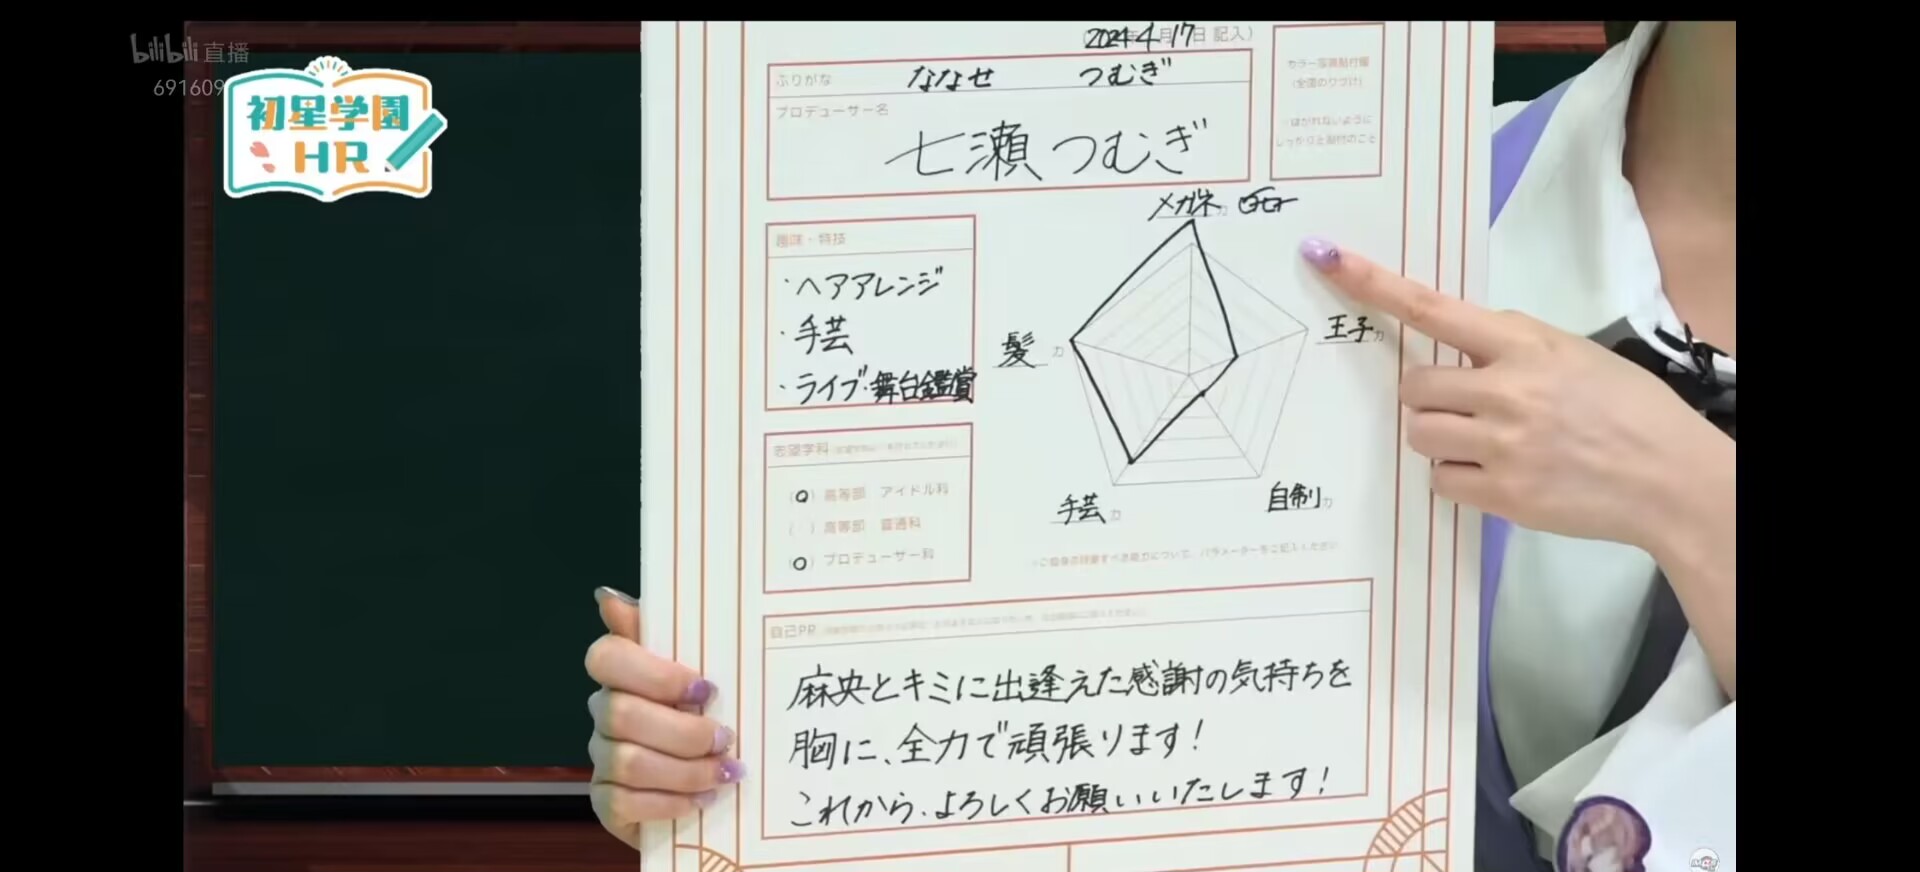 bilibili 直播
691609
初星学園
HR
2024 4 17日 記入)
ふりがな ななせ つむぎ
プロデューサー名
七瀬 つむぎ
カラー写真貼付欄
(全面のりづけ)
はがれないように
しっかりと貼付のこと
趣味・特技
・ヘアアレンジ
・手芸
・ライブ・舞台鑑賞
メガネ力
王子力
自制力
手芸力
髪力
志望学科
(○) 高等部 アイドル科
( ) 高等部 普通科
(○) プロデューサー科
自己PR
麻央とキミに出逢えた感謝の気持ちを
胸に、全力で頑張ります!
これから、よろしくお願いいたします!